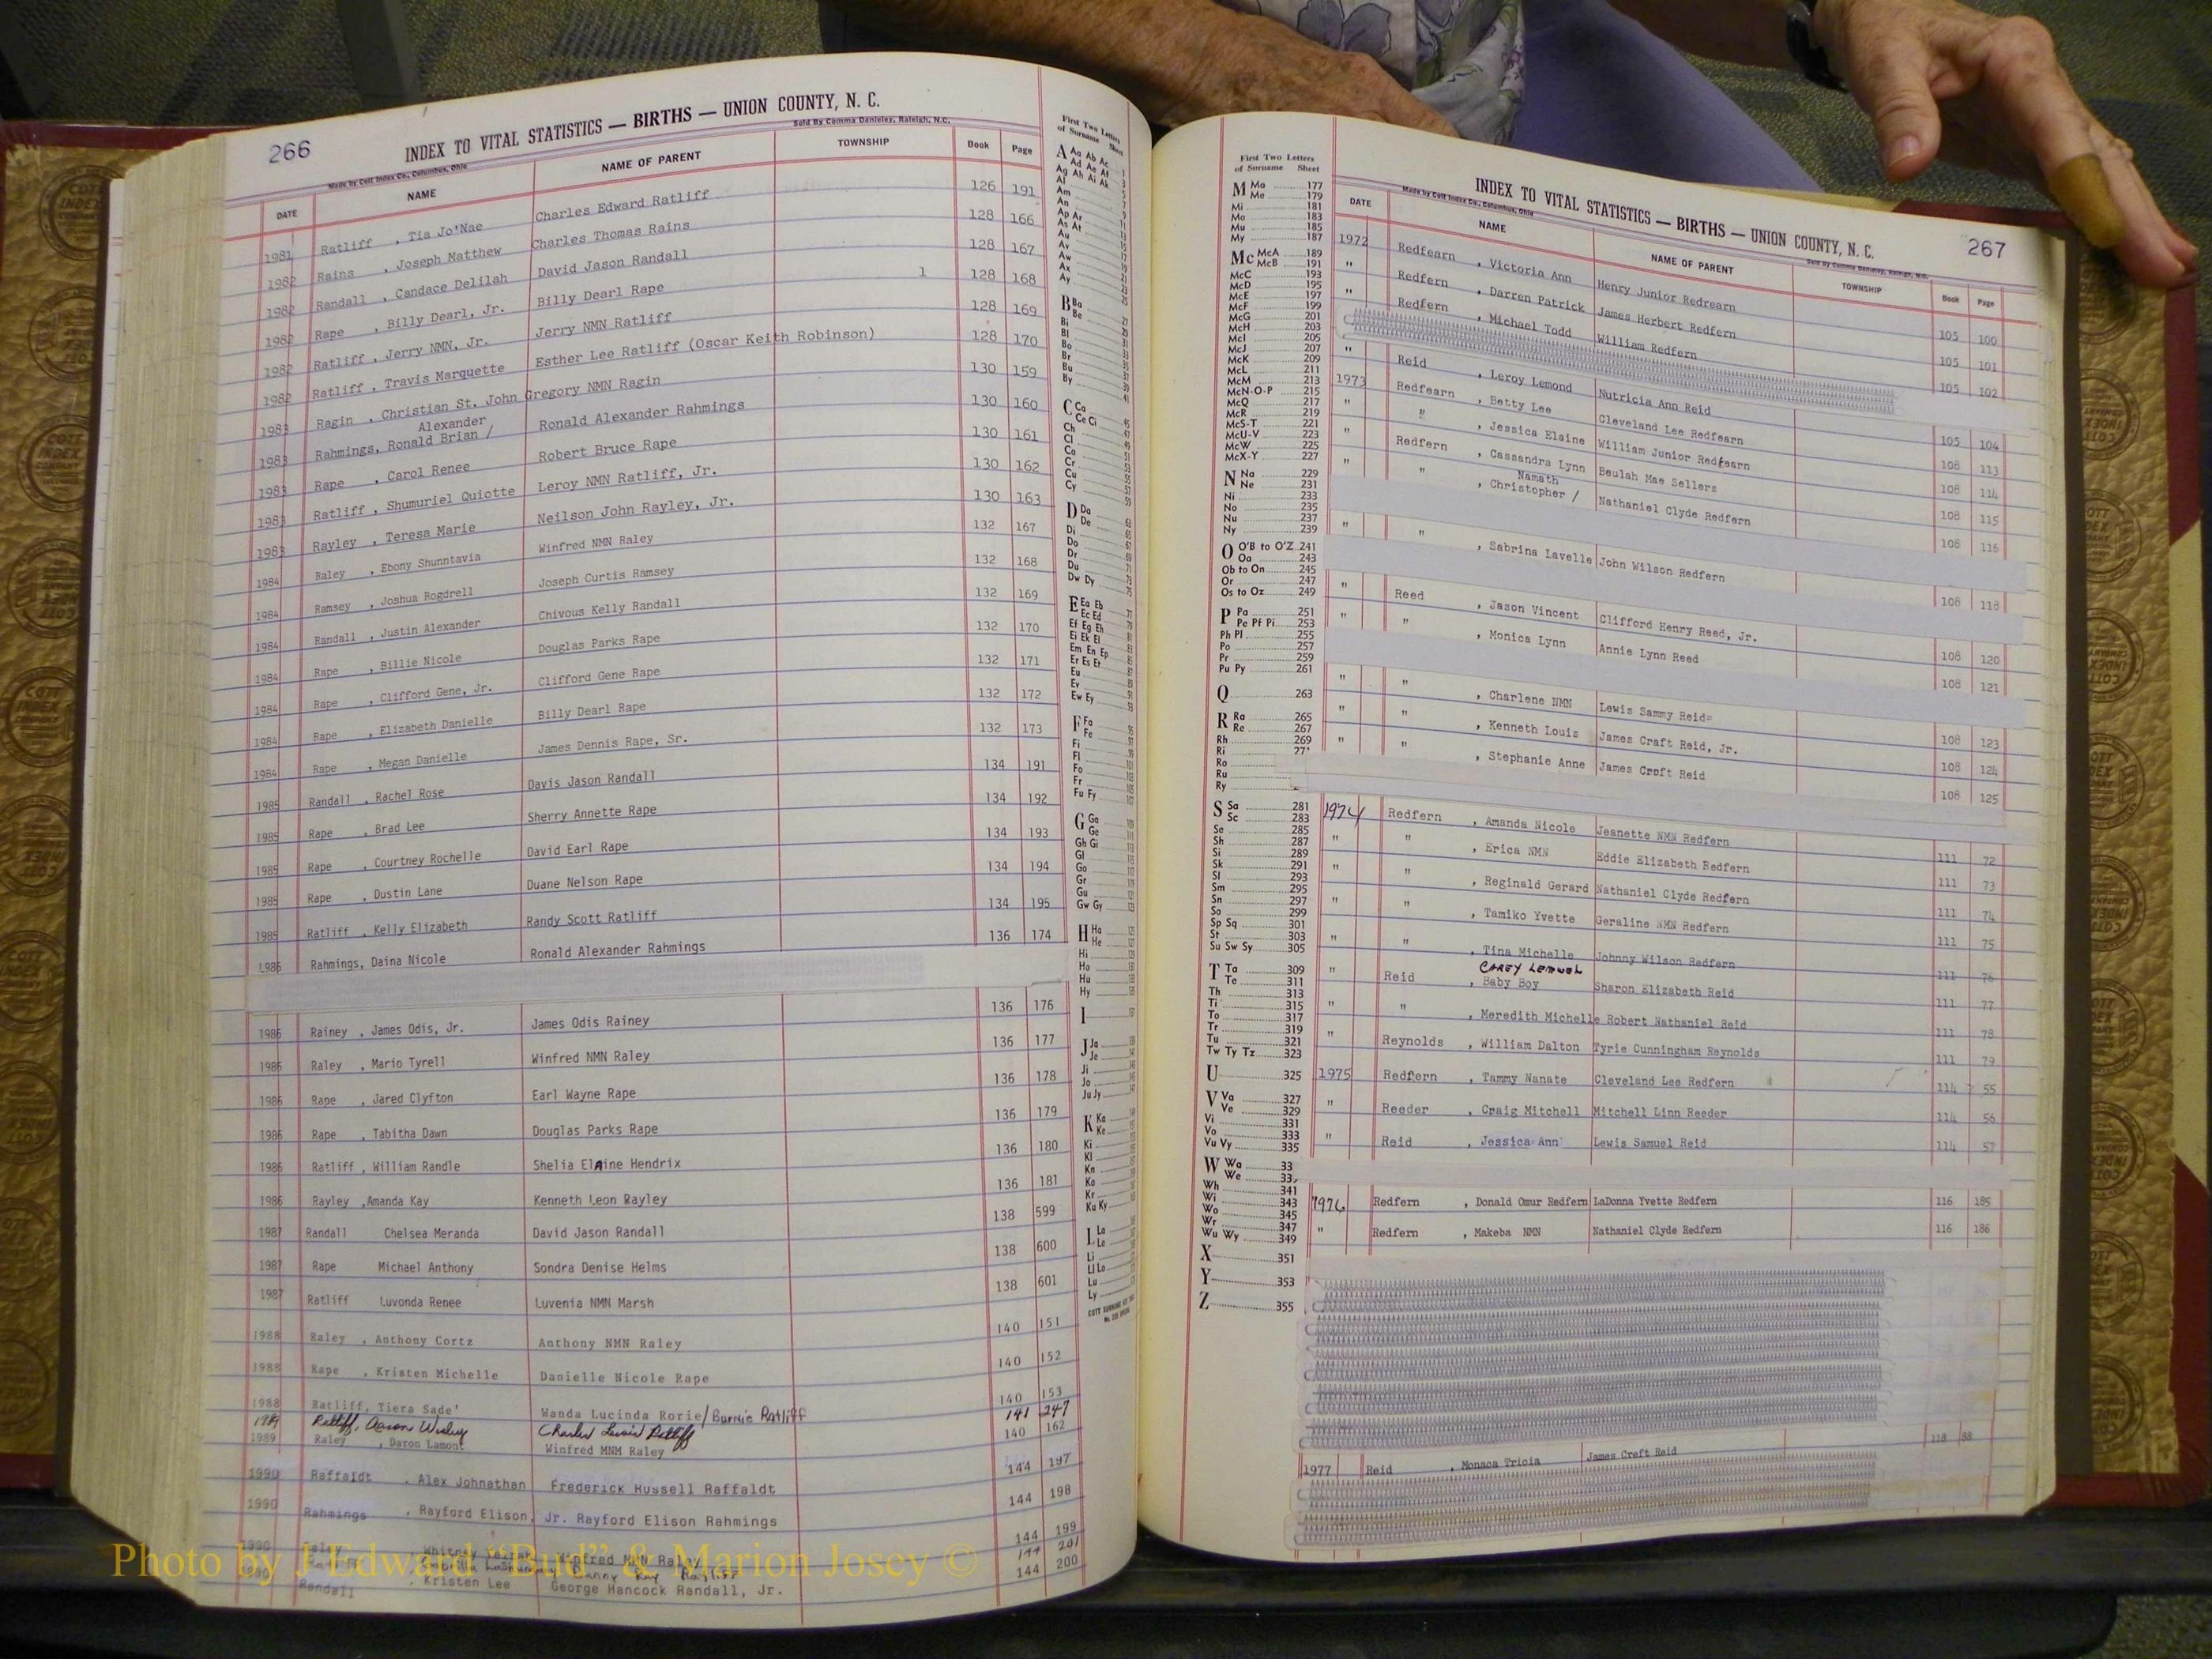 266
INDEX TO VITAL STATISTICS — BIRTHS — UNION COUNTY, N. C.
Made by Cott Index Co., Columbus, Ohio
Sold By Comma Danieley, Raleigh, N.C.
DATE NAME NAME OF PARENT TOWNSHIP Book Page
1981 Ratliff , Tia Jo'Nae Charles Edward Ratliff 126 191
1982 Rains , Joseph Matthew Charles Thomas Rains 128 166
1982 Randall , Candace Delilah David Jason Randall 128 167
1982 Rape , Billy Dearl, Jr. Billy Dearl Rape 1 128 168
1982 Ratliff , Jerry NMN, Jr. Jerry NMN Ratliff 128 169
1982 Ratliff , Travis Marquette Esther Lee Ratliff (Oscar Keith Robinson) 128 170
1983 Ragin , Christian St. John Gregory NMN Ragin 130 159
Alexander
1983 Rahmings, Ronald Brian / Ronald Alexander Rahmings 130 160
1983 Rape , Carol Renee Robert Bruce Rape 130 161
1983 Ratliff , Shumuriel Quiotte Leroy NMN Ratliff, Jr. 130 162
1983 Rayley , Teresa Marie Neilson John Rayley, Jr. 130 163
1984 Raley , Ebony Shunntavia Winfred NMN Raley 132 167
1984 Ramsey , Joshua Rogdrell Joseph Curtis Ramsey 132 168
1984 Randall , Justin Alexander Chivous Kelly Randall 132 169
1984 Rape , Billie Nicole Douglas Parks Rape 132 170
1984 Rape , Clifford Gene, Jr. Clifford Gene Rape 132 171
1984 Rape , Elizabeth Danielle Billy Dearl Rape 132 172
1984 Rape , Megan Danielle James Dennis Rape, Sr. 132 173
1985 Randall , Rachel Rose Davis Jason Randall 134 191
1985 Rape , Brad Lee Sherry Annette Rape 134 192
1985 Rape , Courtney Rochelle David Earl Rape 134 193
1985 Rape , Dustin Lane Duane Nelson Rape 134 194
1985 Ratliff , Kelly Elizabeth Randy Scott Ratliff 134 195
1986 Rahmings, Daina Nicole Ronald Alexander Rahmings 136 174
1986 Rainey , James Odis, Jr. James Odis Rainey 136 176
1986 Raley , Mario Tyrell Winfred NMN Raley 136 177
1986 Rape , Jared Clyfton Earl Wayne Rape 136 178
1986 Rape , Tabitha Dawn Douglas Parks Rape 136 179
1986 Ratliff , William Randle Shelia Elaine Hendrix 136 180
1986 Rayley ,Amanda Kay Kenneth Leon Rayley 136 181
1987 Randall Chelsea Meranda David Jason Randall 138 599
1987 Rape Michael Anthony Sondra Denise Helms 138 600
1987 Ratliff Luvonda Renee Luvenia NMN Marsh 138 601
1988 Raley , Anthony Cortz Anthony NMN Raley 140 151
1988 Rape , Kristen Michelle Danielle Nicole Rape 140 152
1988 Ratliff, Tiera Sade' Wanda Lucinda Rorie/Burnie Ratliff 140 153
1989 Ratliff, Aaron Wesley Charles Lewis Ratliff 141 247
1989 Raley , Daron Lamont Winfred MNM Raley 140 162
1990 Raffaldt , Alex Johnathan Frederick Russell Raffaldt 144 197
1990 Rahmings , Rayford Elison, Jr. Rayford Elison Rahmings 144 198
1990 Raley , Whitney Winfred NMN Raley 144 199
Ratliff Danny Ray Ratliff 144 201
Randall , Kristen Lee George Hancock Randall, Jr. 144 200
Photo by J Edward “Bud” & Marion Josey ©
First Two Letters
of Surname Sheet
A Aa Ab Ac
Ad Ae Af
Ag Ah Ai Ak
Al
Am
An
Ap Ar
As At
Au
Av
Aw
Ax
Ay
B Ba
Be
Bi
Bl
Bo
Br
Bu
By
C Ca
Ce Ci
Ch
Cl
Co
Cr
Cu
Cy
D Da
De
Di
Do
Dr
Du
Dw Dy
E Ea Eb
Ec Ed
Ef Eg Eh
Ei Ek El
Em En Ep
Er Es Et
Eu
Ev
Ew Ey
F Fa
Fe
Fi
Fl
Fo
Fr
Fu Fy
G Ga
Ge
Gh Gi
Gl
Go
Gr
Gu
Gw Gy
H Ha
He
Hi
Ho
Hu
Hy
I
J Ja
Je
Ji
Jo
Ju Jy
K Ka
Ke
Ki
Kl
Kn
Ko
Kr
Ku Ky
L La
Le
Li
Ll Lo
Lu
Ly
First Two Letters
of Surname Sheet
M Ma 177
Me 179
Mi 181
Mo 183
Mu 185
My 187
Mc McA 189
McB 191
McC 193
McD 195
McE 197
McF 199
McG 201
McH 203
McI 205
McJ 207
McK 209
McL 211
McM 213
McN-O-P 215
McQ 217
McR 219
McS-T 221
McU-V 223
McW 225
McX-Y 227
N Na 229
Ne 231
Ni 233
No 235
Nu 237
Ny 239
O O'B to O'Z 241
Oa 243
Ob to On 245
Or 247
Os to Oz 249
P Pa 251
Pe Pf Pi 253
Ph Pl 255
Po 257
Pr 259
Pu Py 261
Q 263
R Ra 265
Re 267
Rh 269
Ri 27
Ro
Ru
Ry
S Sa 281
Sc 283
Se 285
Sh 287
Si 289
Sk 291
Sl 293
Sm 295
Sn 297
So 299
Sp Sq 301
St 303
Su Sw Sy 305
T Ta 309
Te 311
Th 313
Ti 315
To 317
Tr 319
Tu 321
Tw Ty Tz 323
U 325
V Va 327
Ve 329
Vi 331
Vo 333
Vu Vy 335
W Wa 33
We 33
Wh 341
Wi 343
Wo 345
Wr 347
Wu Wy 349
X 351
Y 353
Z 355
INDEX TO VITAL STATISTICS — BIRTHS — UNION COUNTY, N. C.
267
Made by Cott Index Co., Columbus, Ohio
Sold By Comma Danieley, Raleigh, N.C.
DATE NAME NAME OF PARENT TOWNSHIP Book Page
1972 Redfearn , Victoria Ann Henry Junior Redrearn 105 100
" Redfern , Darren Patrick James Herbert Redfern 105 101
" Redfern , Michael Todd William Redfern 105 102
" Reid , Leroy Lemond Nutricia Ann Reid 105 104
1973 Redfearn , Betty Lee Cleveland Lee Redfearn 108 113
" " , Jessica Elaine William Junior Redfearn 108 114
" Redfern , Cassandra Lynn Beulah Mae Sellers 108 115
Namath
" " , Christopher / Nathaniel Clyde Redfern 108 116
" " , Sabrina Lavelle John Wilson Redfern 108 118
" Reed , Jason Vincent Clifford Henry Reed, Jr. 108 120
" " , Monica Lynn Annie Lynn Reed 108 121
" " , Charlene NMN Lewis Sammy Reid= 108 123
" " , Kenneth Louis James Craft Reid, Jr. 108 124
" " , Stephanie Anne James Croft Reid 108 125
1974 Redfern , Amanda Nicole Jeanette NMN Redfern 111 72
" " , Erica NMN Eddie Elizabeth Redfern 111 73
" " , Reginald Gerard Nathaniel Clyde Redfern 111 74
" " , Tamiko Yvette Geraline NMN Redfern 111 75
" " , Tina Michelle Johnny Wilson Redfern 111 76
CAREY LEMUEL
" Reid , Baby Boy Sharon Elizabeth Reid 111 77
" " , Meredith Michelle Robert Nathaniel Reid 111 78
" Reynolds , William Dalton Tyrie Cunningham Reynolds 111 79
1975 Redfern , Tammy Nanate Cleveland Lee Redfern 114 55
" Reeder , Craig Mitchell Mitchell Linn Reeder 114 56
" Reid , Jessica Ann Lewis Samuel Reid 114 57
1976 Redfern , Donald Omur Redfern LaDonna Yvette Redfern 116 185
" Redfern , Makeba NMN Nathaniel Clyde Redfern 116 186
1977 Reid , Monaca Tricia James Creft Reid 118 88